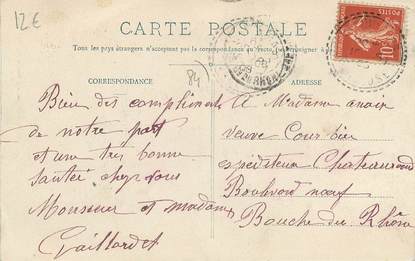 12€
CARTE POSTALE
Tous les pays étrangers n'acceptent pas la correspondance au recto
CORRESPONDANCE
84
ADRESSE
10
Bien des compliments
de notre part
et une tres bonne
santée chez vous
Monsieur et madame
Gaillardet
A Madame
veuve Courbier
expéditeur Chateaurenard
Boulvard neuf
Bouche du Rhône